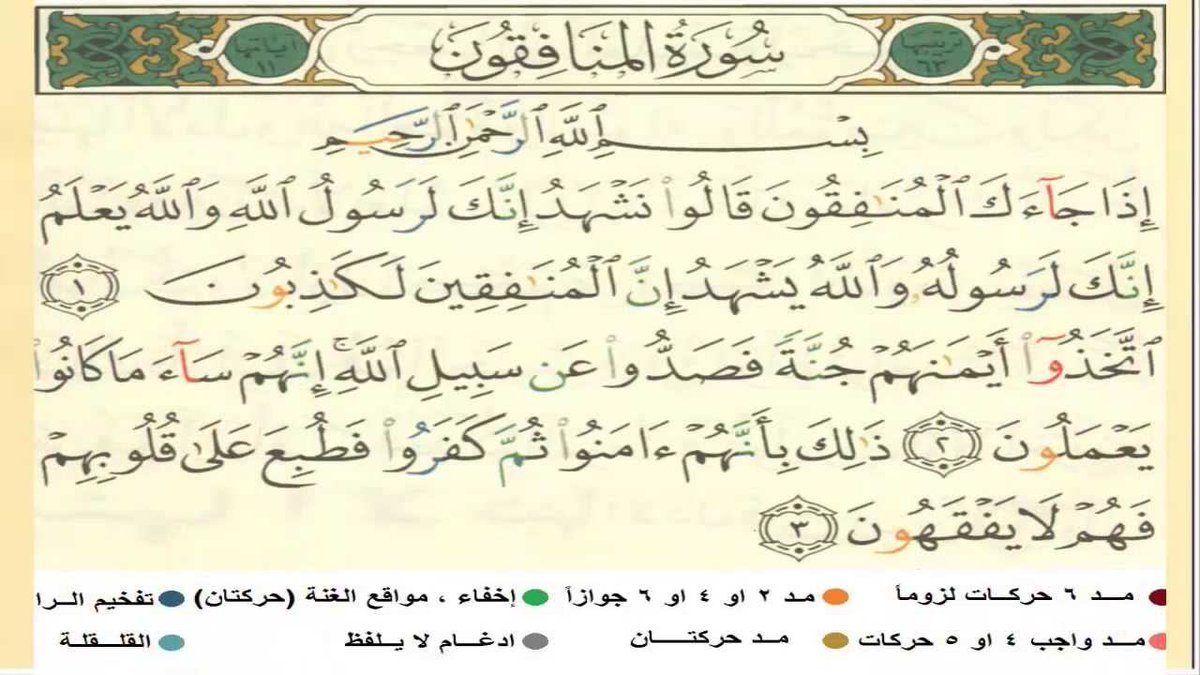 ترتيبها ٦٣ سُورَةُ المُنَافِقُونَ آياتها ١١
بِسْمِ ٱللَّهِ ٱلرَّحْمَٰنِ ٱلرَّحِيمِ
إِذَا جَآءَكَ ٱلْمُنَٰفِقُونَ قَالُوا۟ نَشْهَدُ إِنَّكَ لَرَسُولُ ٱللَّهِ وَٱللَّهُ يَعْلَمُ
إِنَّكَ لَرَسُولُهُۥ وَٱللَّهُ يَشْهَدُ إِنَّ ٱلْمُنَٰفِقِينَ لَكَٰذِبُونَ ١
ٱتَّخَذُوٓا۟ أَيْمَٰنَهُمْ جُنَّةً فَصَدُّوا۟ عَن سَبِيلِ ٱللَّهِ ۚ إِنَّهُمْ سَآءَ مَا كَانُوا۟
يَعْمَلُونَ ٢ ذَٰلِكَ بِأَنَّهُمْ ءَامَنُوا۟ ثُمَّ كَفَرُوا۟ فَطُبِعَ عَلَىٰ قُلُوبِهِمْ
فَهُمْ لَا يَفْقَهُونَ ٣
مـد ٦ حركـات لزوماً مـد ٢ او ٤ او ٦ جوازاً إخفاء ، مواقع الغنة (حركتان) تفخيم الـرا
مـد واجب ٤ او ٥ حركات مـد حركتـــان ادغـام لا يـلفظ القلـقلة